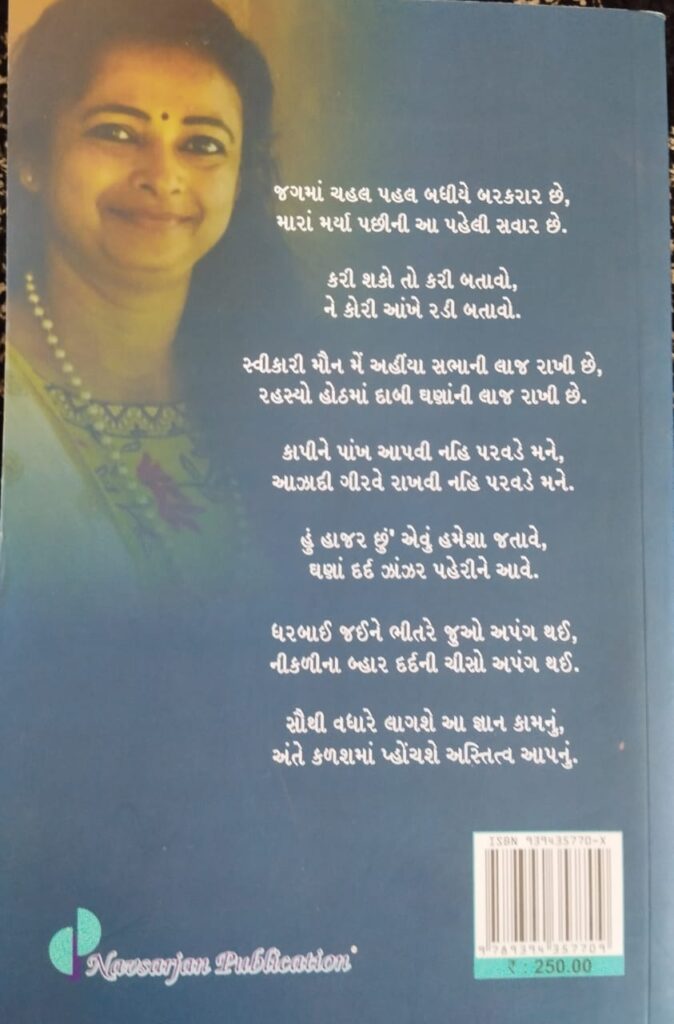 જગમાં ચહલ પહલ બધીયે બરકરાર છે,
મારાં મર્યા પછીની આ પહેલી સવાર છે.
કરી શકો તો કરી બતાવો,
ને કોરી આંખે રડી બતાવો.
સ્વીકારી મૌન મેં અહીંયા સભાની લાજ રાખી છે,
રહસ્યો હોઠમાં દાબી ઘણાંની લાજ રાખી છે.
કાપીને પાંખ આપવી નહિ પરવડે મને,
આઝાદી ગીરવે રાખવી નહિ પરવડે મને.
હું હાજર છું' એવું હમેશા જતાવે,
ઘણાં દર્દ ઝાંઝર પહેરીને આવે.
ધરબાઈ જઈને ભીતરે જુઓ અપંગ થઈ,
નીકળીના બ્હાર દર્દની ચીસો અપંગ થઈ.
સૌથી વધારે લાગશે આ જ્ઞાન કામનું,
અંતે કળશમાં પ્હોંચશે અસ્તિત્વ આપનું.
ISBN 939435770-X
9 789394 357709
₹ : 250.00
Navsarjan Publication